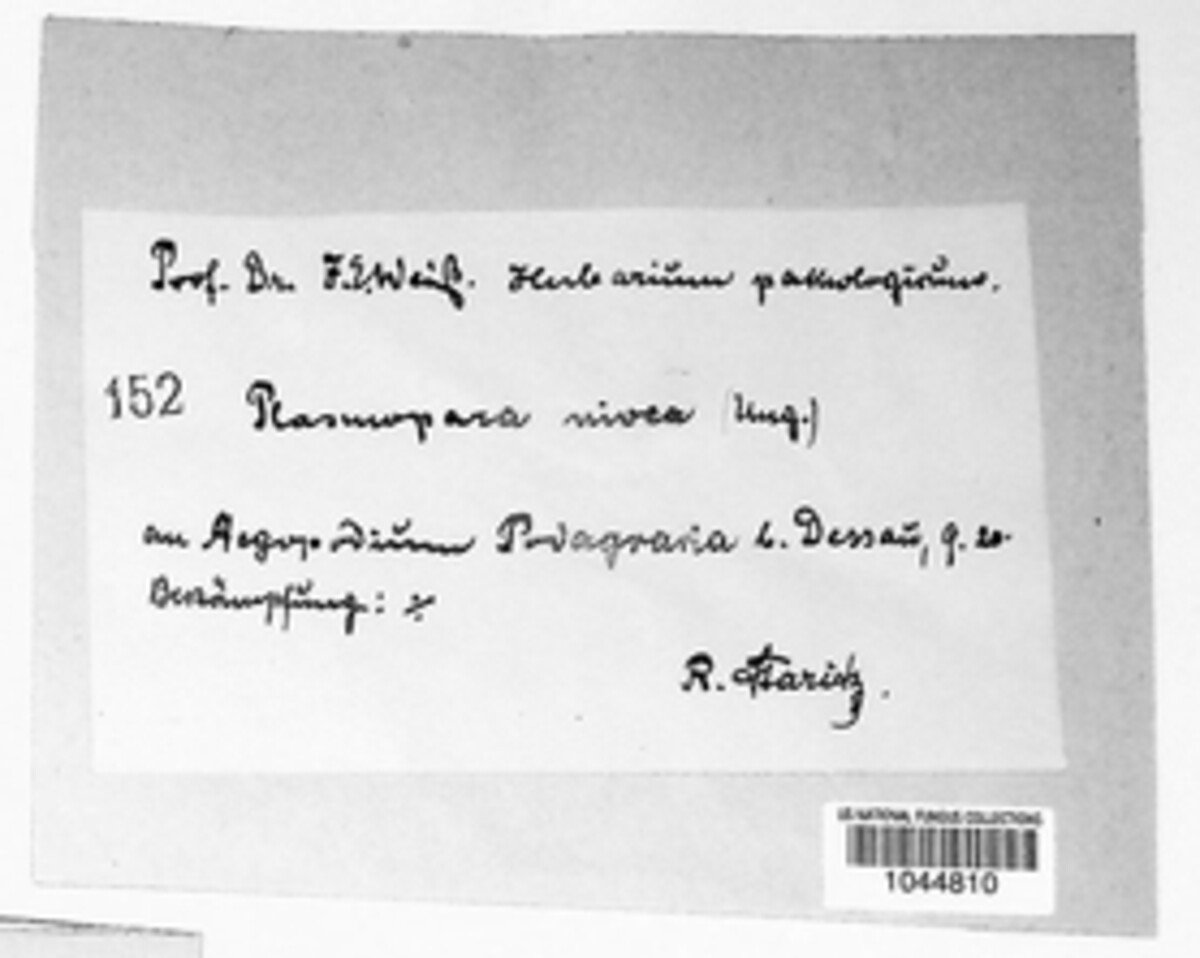 Prof. Dr. J. E. Weiß. Herbarium pathologicum.
152 Plasmopara nivea (Ung.)
an Aegopodium Podagraria b. Dessau, 9. 20.
Bekämpfung: ⁒
R. Staritz.
US NATIONAL FUNGUS COLLECTIONS
1044810